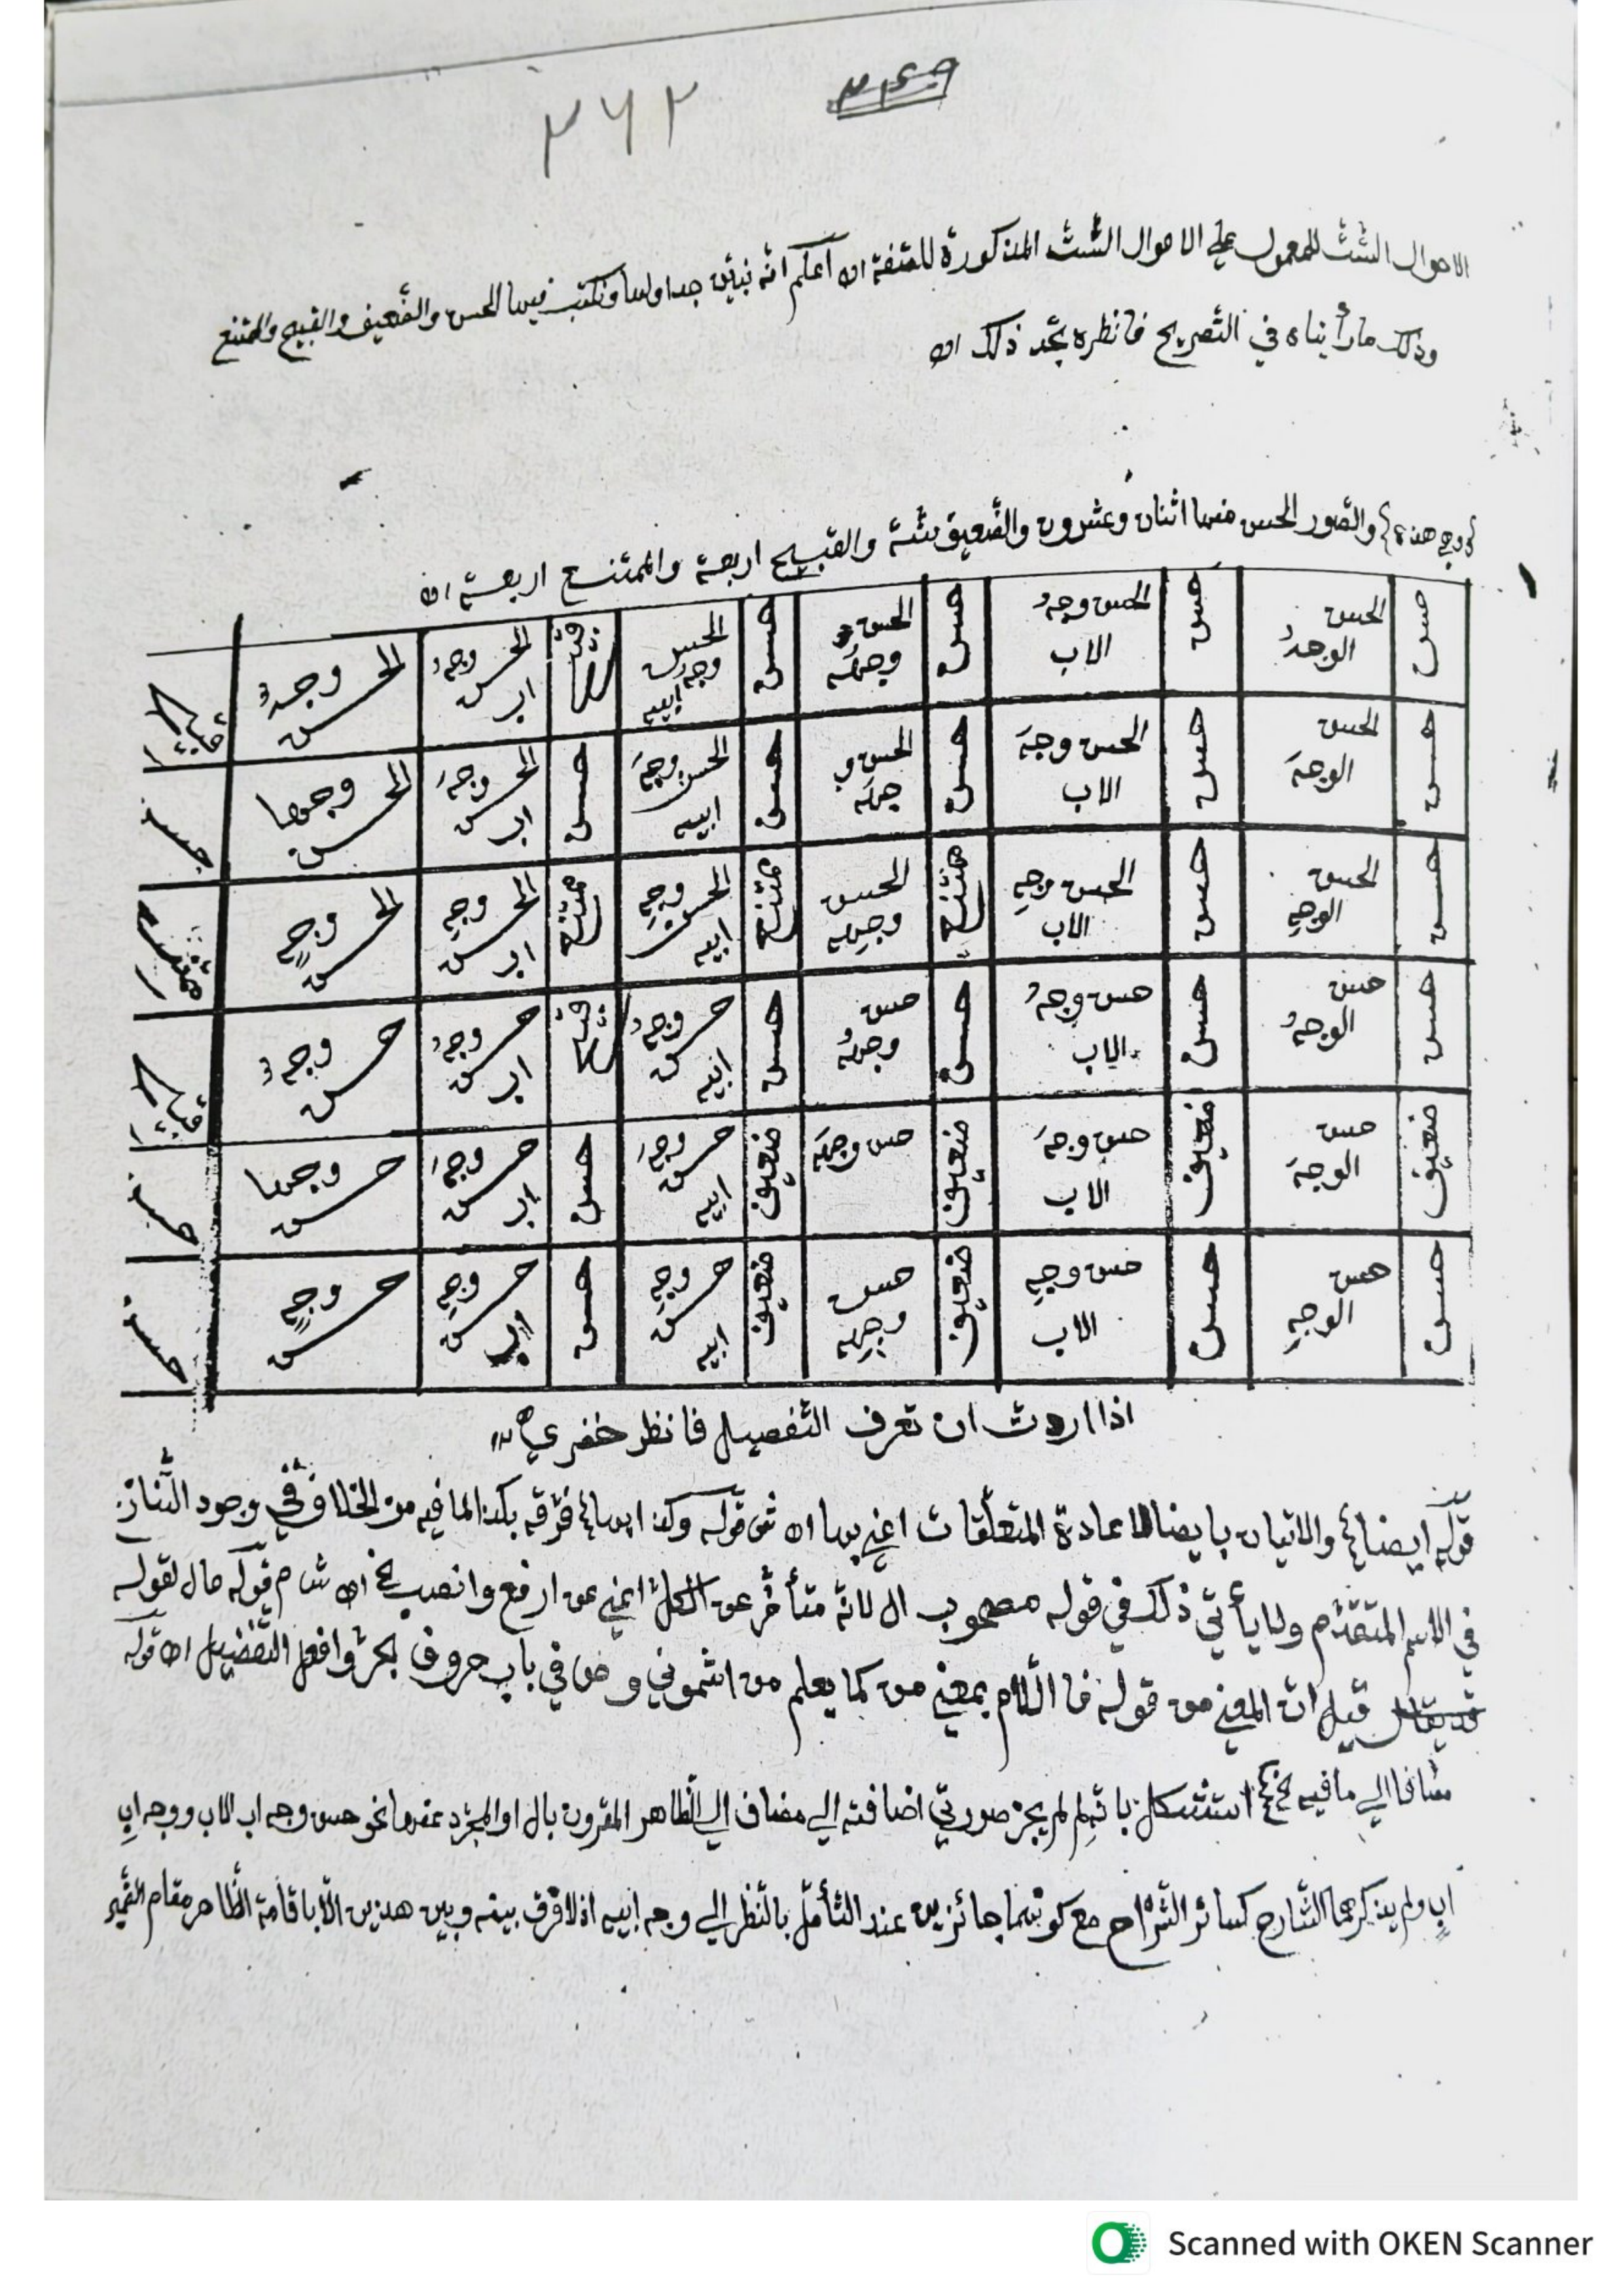 ٢٦٢
الاحوال الست للمعمول علي الاحوال الست المذكورة للصفة اه اعلم انه نبين جداولها ونكتب فيها الحسن والضعيف والقبيح والممتنع
وذلك ما رأيناه في التصريح فانظره تجد ذلك اه
وجه هذه والصور الحسن منها اثنان وعشرون والضعيف ستة والقبيح اربعة والممتنع اربعة اه
حسن الحسن الوجهُ حسن الحسن وجهُ الاب حسن الحسن وجهُه حسن الحسن وجهُ ابيه قبيح الحسن وجهُ اب الحسن وجهٌ قبيح
حسن الحسن الوجهَ حسن الحسن وجهَ الاب حسن الحسن وجهَه حسن الحسن وجهَ ابيه حسن الحسن وجهَ اب الحسن وجها حسن
حسن الحسن الوجهِ حسن الحسن وجهِ الاب ممتنع الحسن وجهِه ممتنع الحسن وجهِ ابيه ممتنع الحسن وجهِ اب الحسن وجهٍ ممتنع
حسن حسن الوجهُ حسن حسن وجهُ الاب حسن حسن وجهُه حسن حسن وجهُ ابيه قبيح حسن وجهُ اب حسن وجهٌ قبيح
ضعيف حسن الوجهَ ضعيف حسن وجهَ الاب ضعيف حسن وجهَه ضعيف حسن وجهَ ابيه حسن حسن وجهَ اب حسن وجها حسن
حسن حسن الوجهِ حسن حسن وجهِ الاب ضعيف حسن وجهِه ضعيف حسن وجهِ ابيه حسن حسن وجهِ اب حسن وجهٍ حسن
اذا اردت ان تعرف التفصيل فانظر خضري
قوله ايضا والاتيان بايضا لاعادة المتعلقات اعني بها اه قوله وكذا ايضا فرقه بكذا لما فيه من الخلاف في وجود التنازع
في الاسم المتقدم ولا يأتي ذلك في قوله مصحوب ال لانه متأخر عن الكل اعني عن ارفع وانصب اه قوله حال لقوله
قيل ان المعني من قوله فاللام بمعني من كما يعلم من اشموني في باب حروف الجر وافعل التفضيل اه قوله
مضافا الي ما فيه استشكل بانهم لم يجز صورتي اضافته الي مضاف الي الظاهر المقرون بال او المجرد عنها نحو حسن وجه اب الاب ووجه اب
اب ولم يذكرهما الشارح كسائر الشراح مع كونهما جائزين عند التأمل بالنظر الي وجه ابيه اذ لا فرق بينه وبين هذين الا باقامة الظاهر مقام الضمير
Scanned with OKEN Scanner